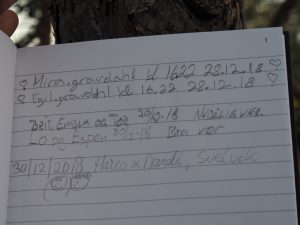 1
♡ Mina.gravdahl kl 16.22 28.12.18 ♡
♡ Egil.gravdahl kl 16.22 28.12.18 ♡
Brit, Emilia og Tor 30/12-18 Nydelig vær.
LO og Espen 30/12-18 Bra vær
30/12/2018 Harco & Dandi, Svelvik